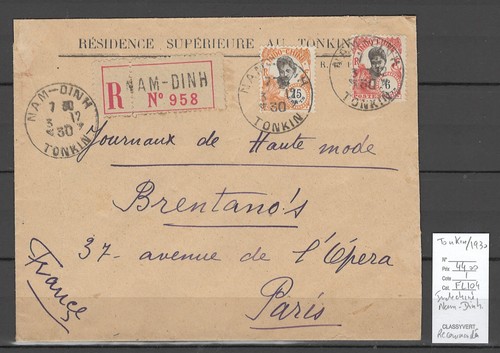 RÉSIDENCE SUPÉRIEURE AU TONKIN
R
NAM-DINH
Nº 958
NAM-DINH
7 30
3 12
30
TONKIN
NAM-DINH
30
TONKIN
INDO-CHINE
15
INDO-CHINE
POSTES
6
30
Journaux de Haute mode
Brentano's
37- avenue de l'Opéra
Paris
France
Tonkin/1930
Nº
Prix 44.00
Cote 1
Cat FL104
Indochine
Nam-Dinh
CLASSYVERT
Recommandé